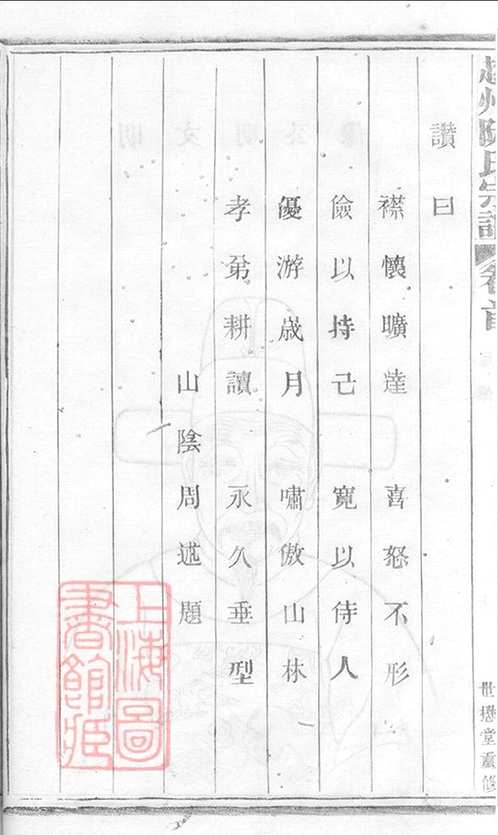 陳氏宗譜 卷首
讚曰
襟懷曠達 喜怒不形
儉以持己 寬以侍人
優游歲月 嘯傲山林
孝弟耕讀 永久垂型
山陰周述題
世懋堂重修
上海圖書館藏